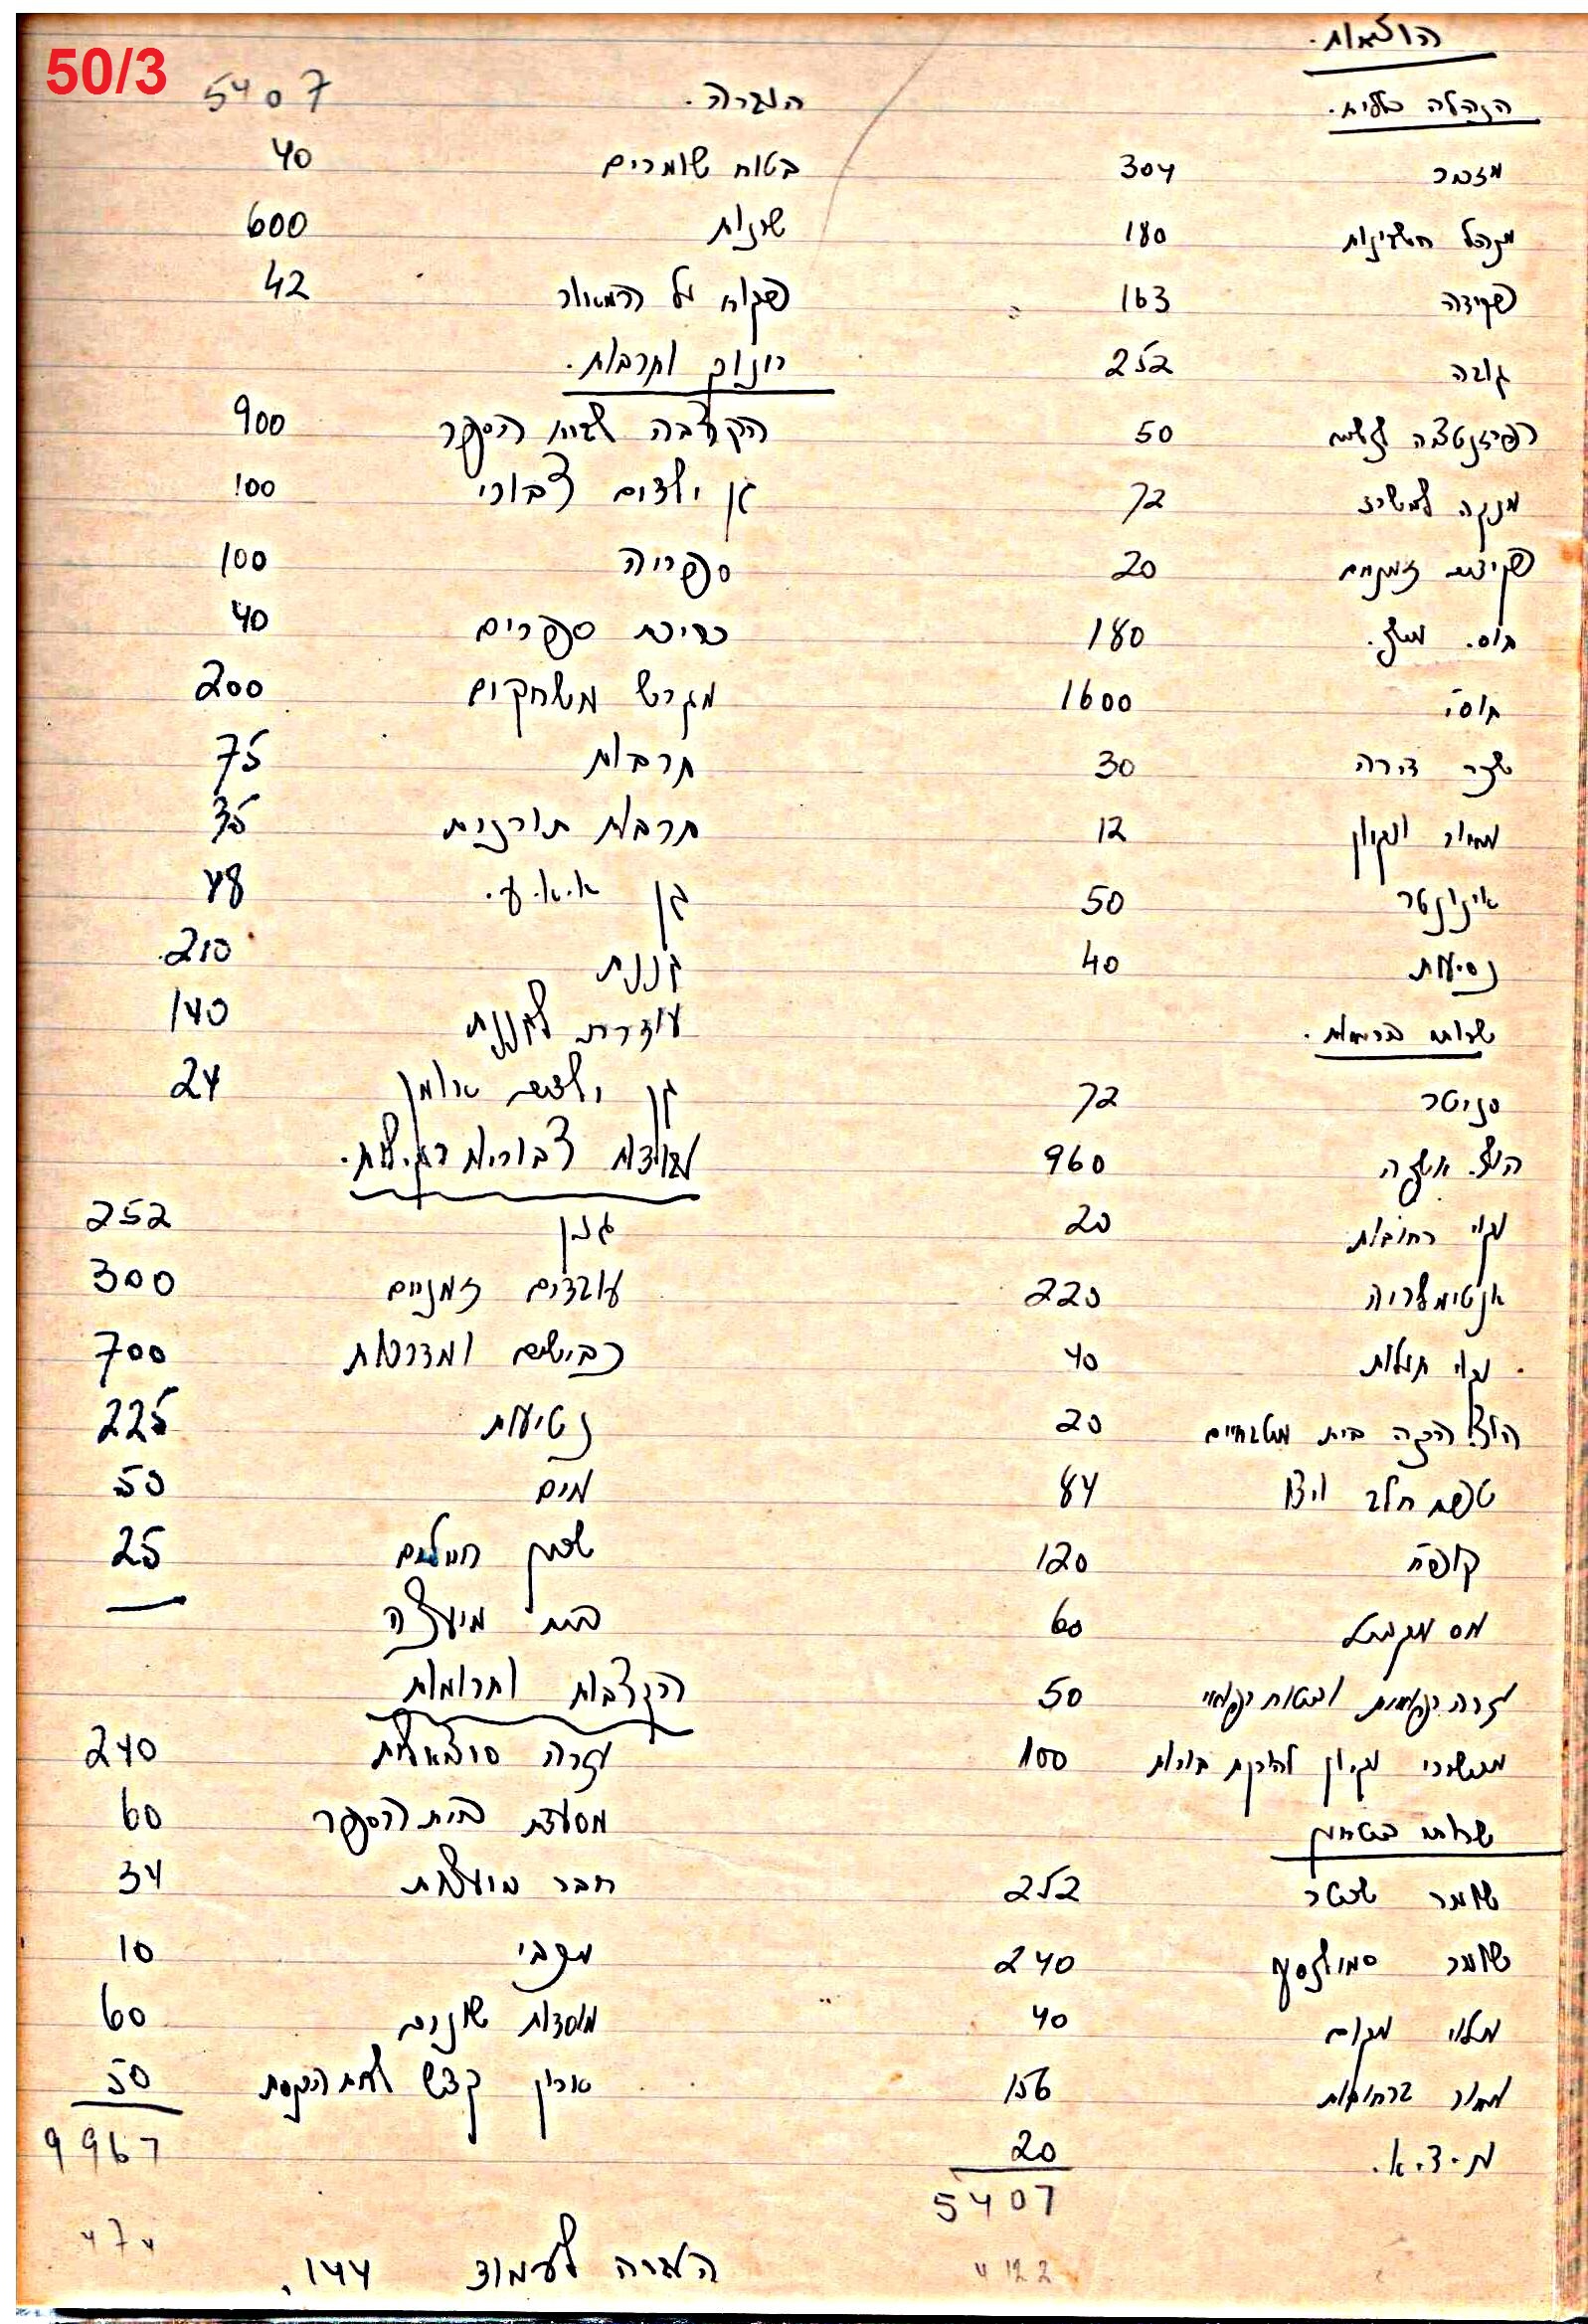 50/3
הוצאות.
הנהלה כללית.
מזכיר 304
מנהל חשבונות 180
פקידה 163
גובה 252
רפרזנטציה 50
מנקה למשרד 72
פקידים זמניים 20
תוס. 180
תוס' 1600
שכר דירה 30
מאור ונקיון 12
אינוונטר 50
נסיעות 40
שרותי בריאות.
סניטר 72
הוצ. אשפה 960
נקוי רחובות 20
אנטימלריה 220
נקוי תעלות 40
הוצ. הרקה בית מטבחיים 20
טפת חלב ויצו 84
קופ"ח 120
מס מקביל 60
עזרה רפואית ובטוח רפואי 50
מכשירי נקיון להרקת בורות 100
שרותי בטחון
שומר שכטר 252
שומר 240
מלוי מקום 40
מאור ברחובות 156
מ.ד.א. 20
5407
4122
העברה. 5407
בטוח שומרים 40
שונות 600
פקוח על המאור 42
חינוך ותרבות.
הקצבה לבית הספר 900
גן ילדים צבורי 100
ספריה 100
כריכת ספרים 40
מגרש משחקים 200
תרבות 75
תרבות תורנית 35
גן א.א.ע. 48
גננת 210
עוזרת לגננת 140
גן ילדים 24
עבודות צבוריות רגילות.
גנן 252
עובדים זמניים 300
כבישים ומדרכות 700
נטיעות 225
מים 50
שכון חיילים 25
בית מועצה —
הקצבות ותרומות
עזרה סוציאלית 240
מסעדת בית הספר 60
חבר מועצות 34
מכבי 10
מוסדות שונים 60
ארון קדש לבית הכנסת 50
9967
474
העברה לעמוד 144.